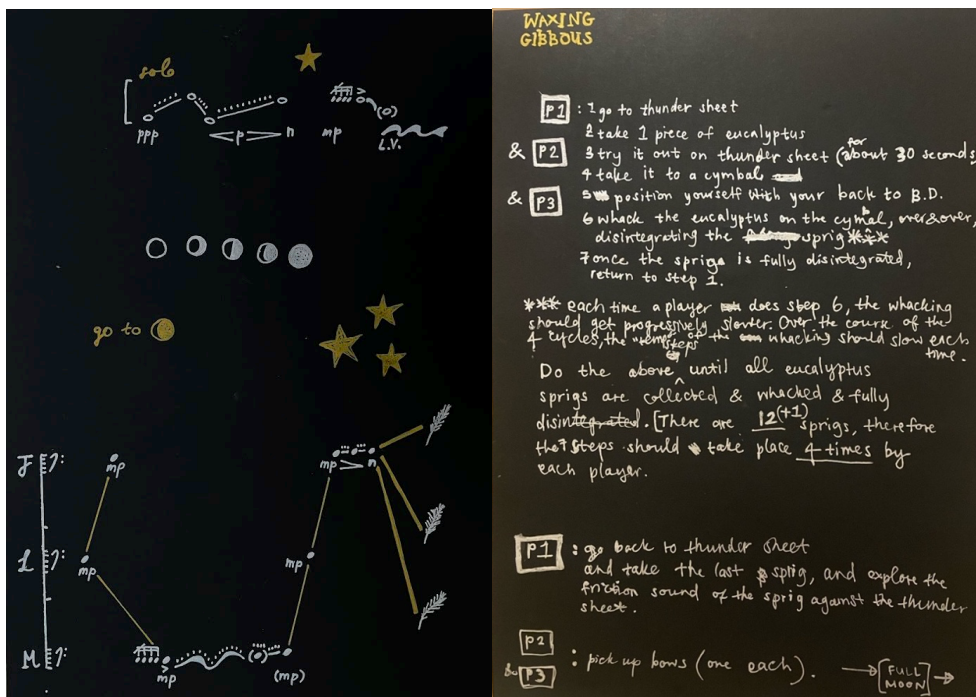 solo
ppp
p
n
mp
L.V.
go to
mp
mp
n
mp
mp
M
mp
(mp)
WAXING
GIBBOUS
P1 : 1 go to thunder sheet
2 take 1 piece of eucalyptus
& P2 3 try it out on thunder sheet (for about 30 seconds)
4 take it to a cymbal
& P3 5 position yourself with your back to B.D.
6 whack the eucalyptus on the cymbal, over & over,
disintegrating the sprig ***
7 once the sprig is fully disintegrated,
return to step 1.
*** each time a player does step 6, the whacking
should get progressively slower. Over the course of the
4 cycles, the of the whacking should slow each
time.
Do the above steps until all eucalyptus
sprigs are collected & whacked & fully
disintegrated. [There are 12 (+1) sprigs, therefore
the 7 steps should take place 4 times by
each player.
P1 : go back to thunder sheet
and take the last sprig, and explore the
friction sound of the sprig against the thunder
sheet.
P2
& P3 : pick up bows (one each). → [FULL MOON] →